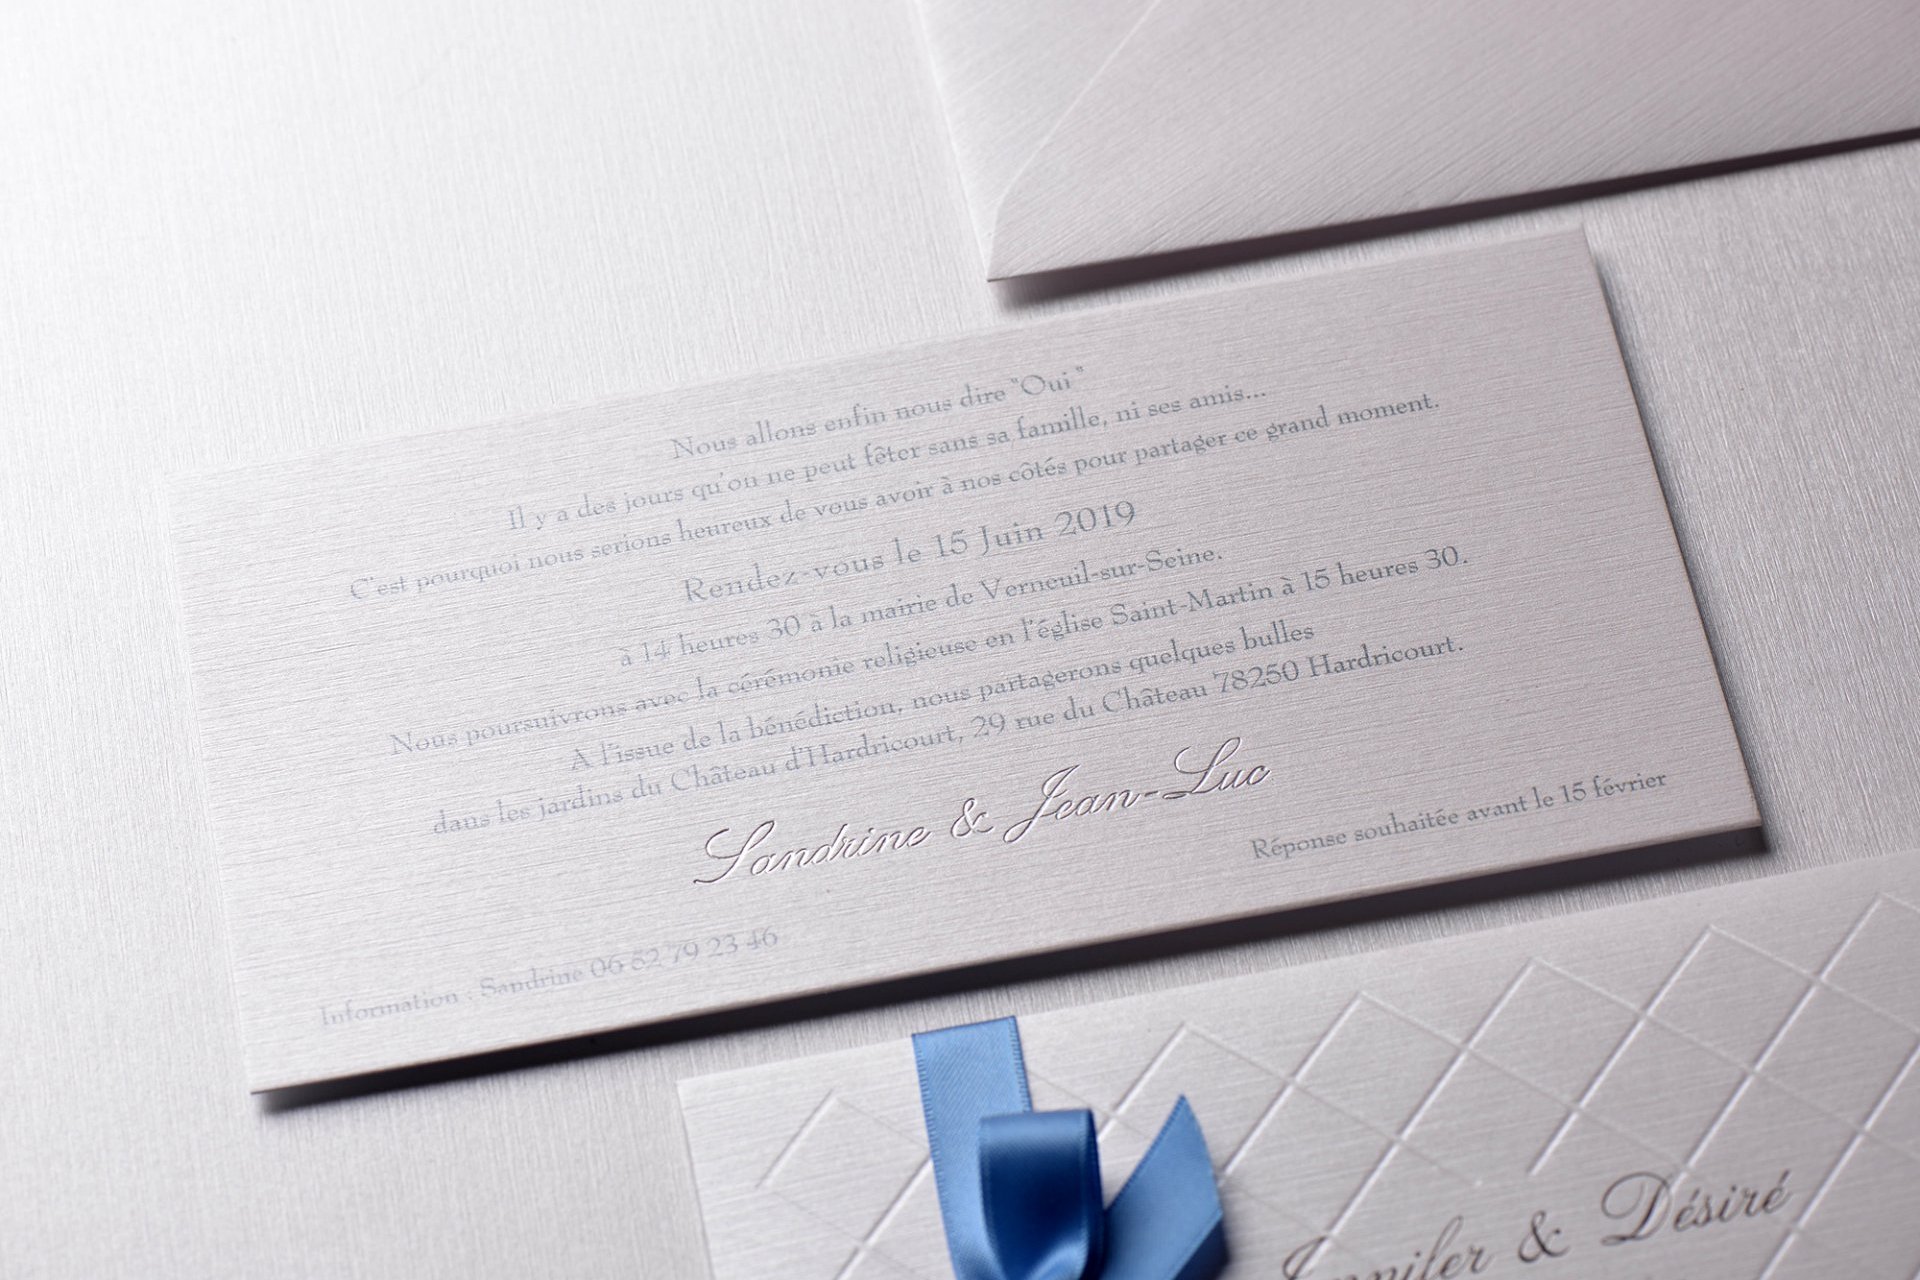 Nous allons enfin nous dire "Oui "
Il y a des jours qu'on ne peut fêter sans sa famille, ni ses amis...
C'est pourquoi nous serions heureux de vous avoir à nos côtés pour partager ce grand moment.
Rendez-vous le 15 Juin 2019
à 14 heures 30 à la mairie de Verneuil-sur-Seine.
Nous poursuivrons avec la cérémonie religieuse en l'église Saint-Martin à 15 heures 30.
A l'issue de la bénédiction, nous partagerons quelques bulles
dans les jardins du Château d'Hardricourt, 29 rue du Château 78250 Hardricourt.
Sandrine & Jean-Luc
Réponse souhaitée avant le 15 février
Information : Sandrine 06 62 79 23 46
& Désiré